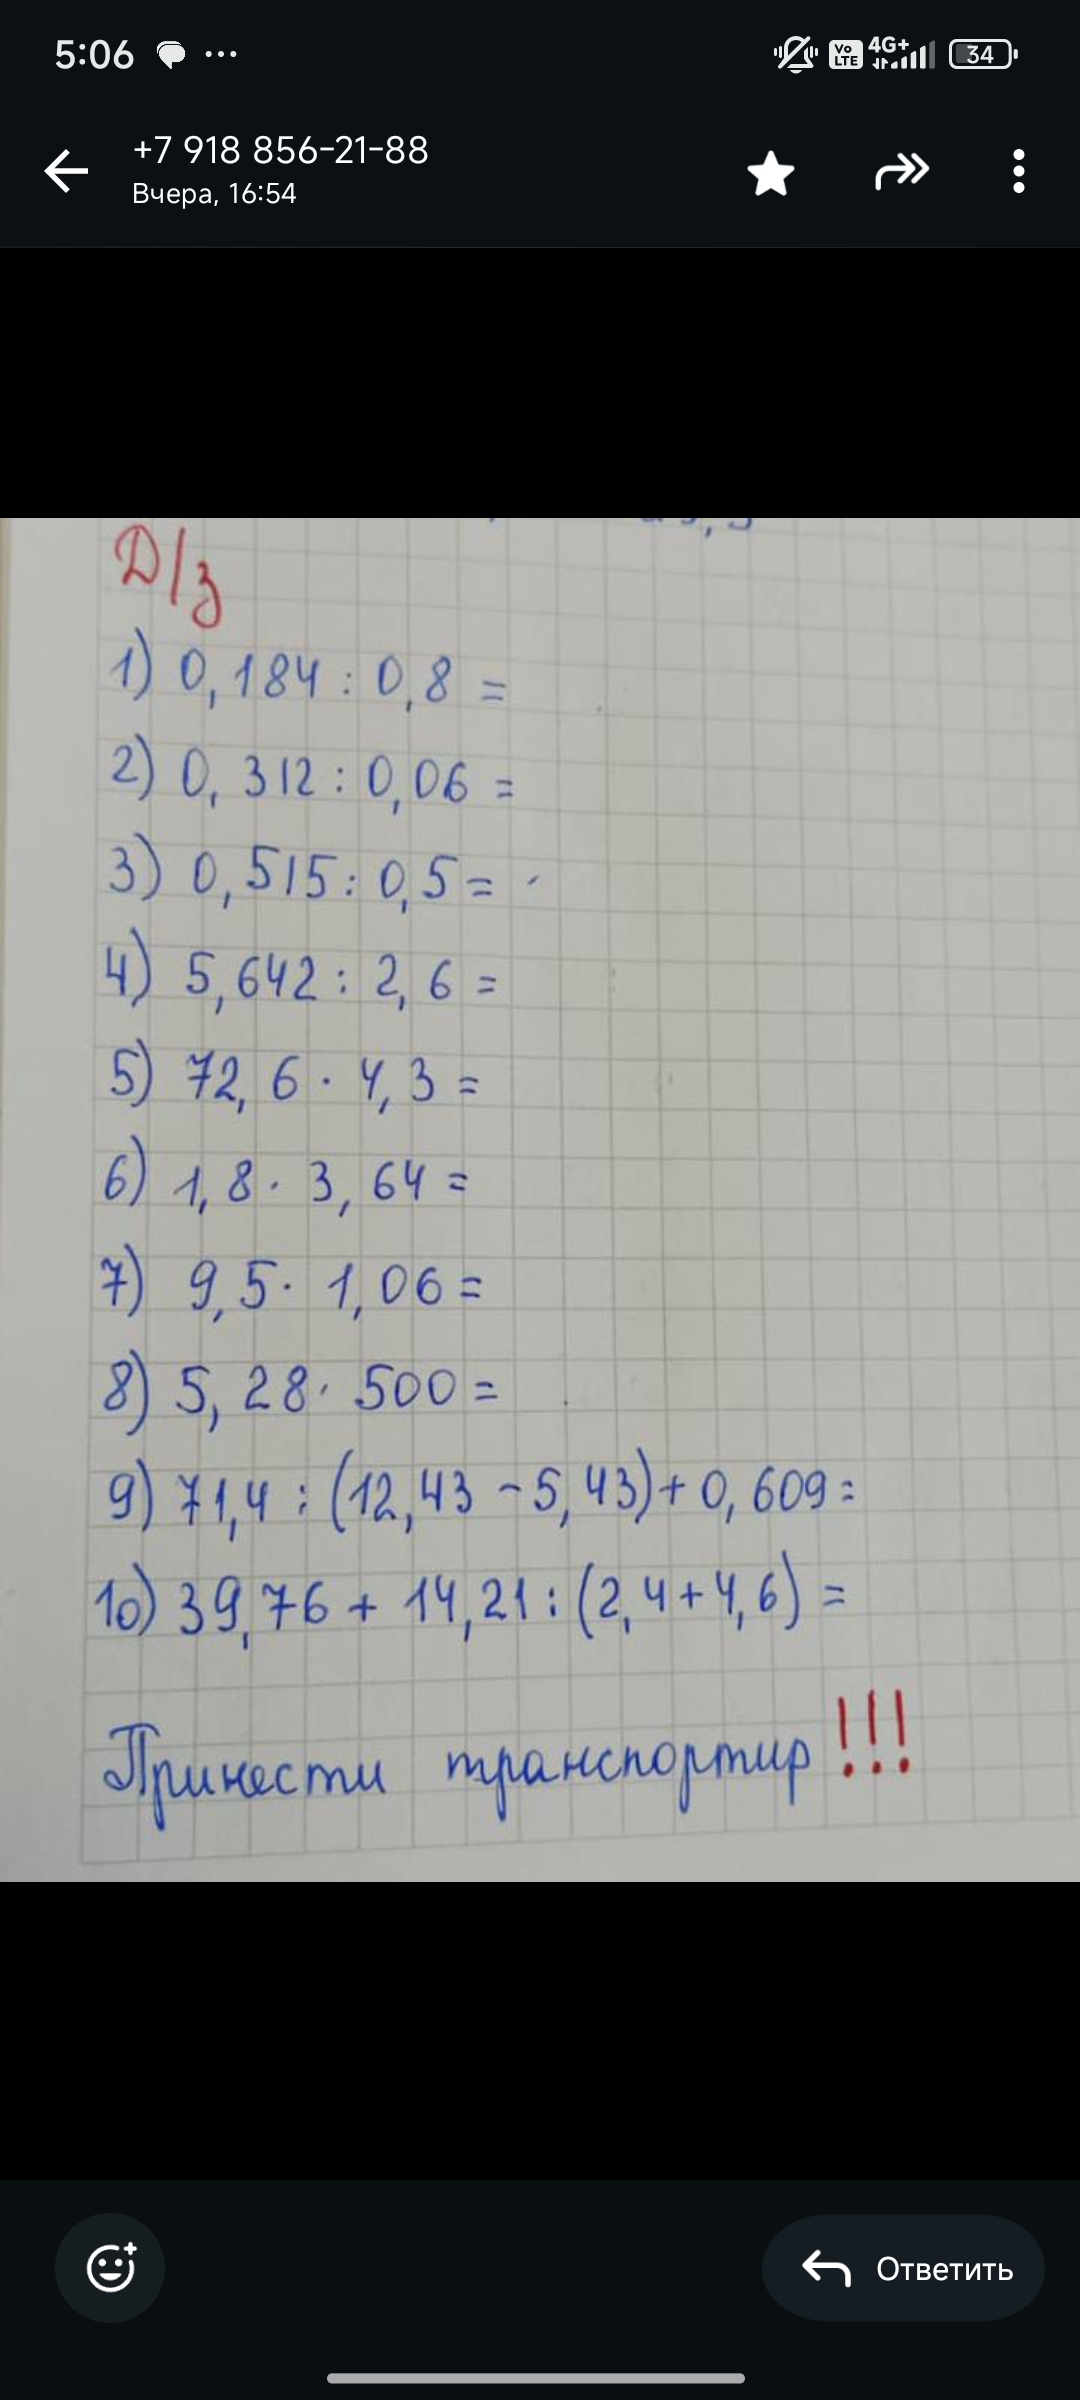 5:06 ... Vo LTE 4G+ 34
+7 918 856-21-88
Вчера, 16:54
Д/з
1) 0,184 : 0,8 =
2) 0,312 : 0,06 =
3) 0,515 : 0,5 =
4) 5,642 : 2,6 =
5) 72,6 · 4,3 =
6) 1,8 · 3,64 =
7) 9,5 · 1,06 =
8) 5,28 · 500 =
9) 71,4 : (12,43 - 5,43) + 0,609 =
10) 39,76 + 14,21 : (2,4 + 4,6) =
Принести транспортир !!!
Ответить